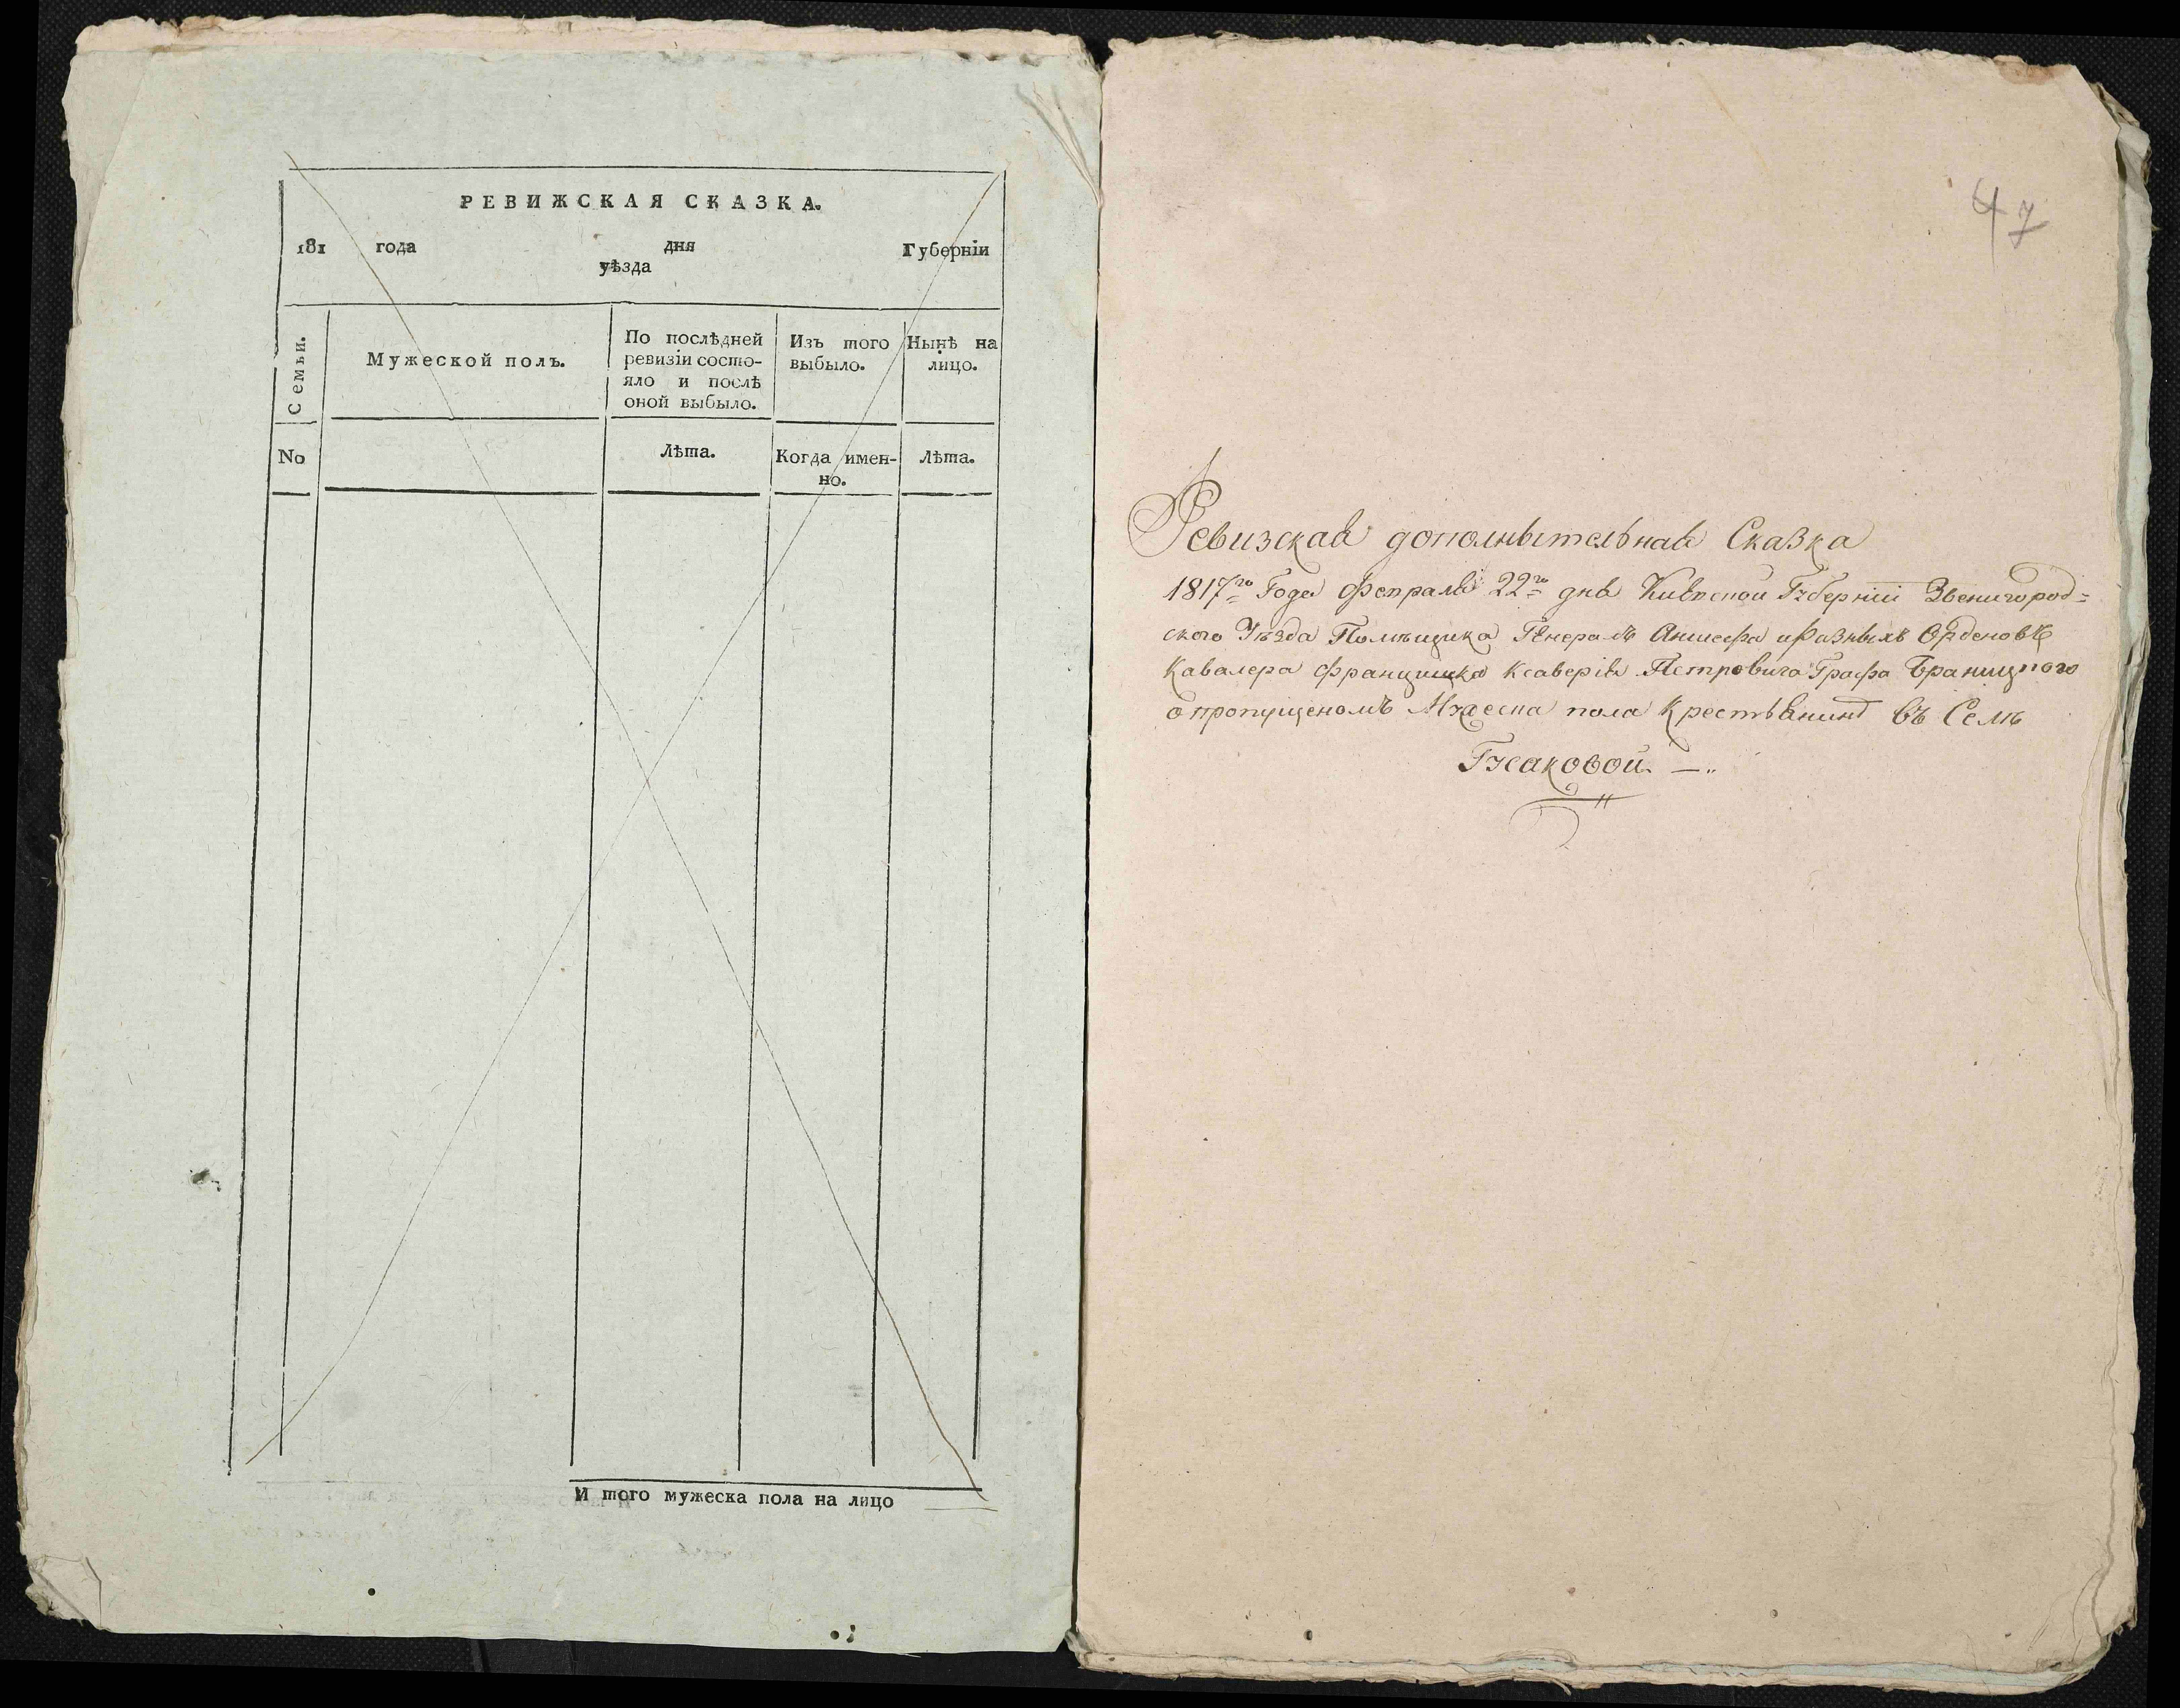 РЕВИЖСКАЯ СКАЗКА.
181 года дня Губерніи
уѣзда
Семьи.
Мужеской полъ.
По послѣдней
ревизіи состо-
яло и послѣ
оной выбыло.
Изъ того
выбыло.
Нынѣ на
лицо.
No
Лѣта.
Когда имен-
но.
Лѣта.
И того мужеска пола на лицо
47
Ревизская дополнытельная Сказка
1817го Года Февраля 22го дня Киевской Губерніи Звенигород=
ского Уѣзда Помѣщика Генералъ Аншефа и разныхъ Орденовъ
Кавалера Францишка Ксаверія Петровича Графа Браницкого
о пропущеномъ Мужеска пола Крестьянинѣ въ Селѣ
Гусаковой